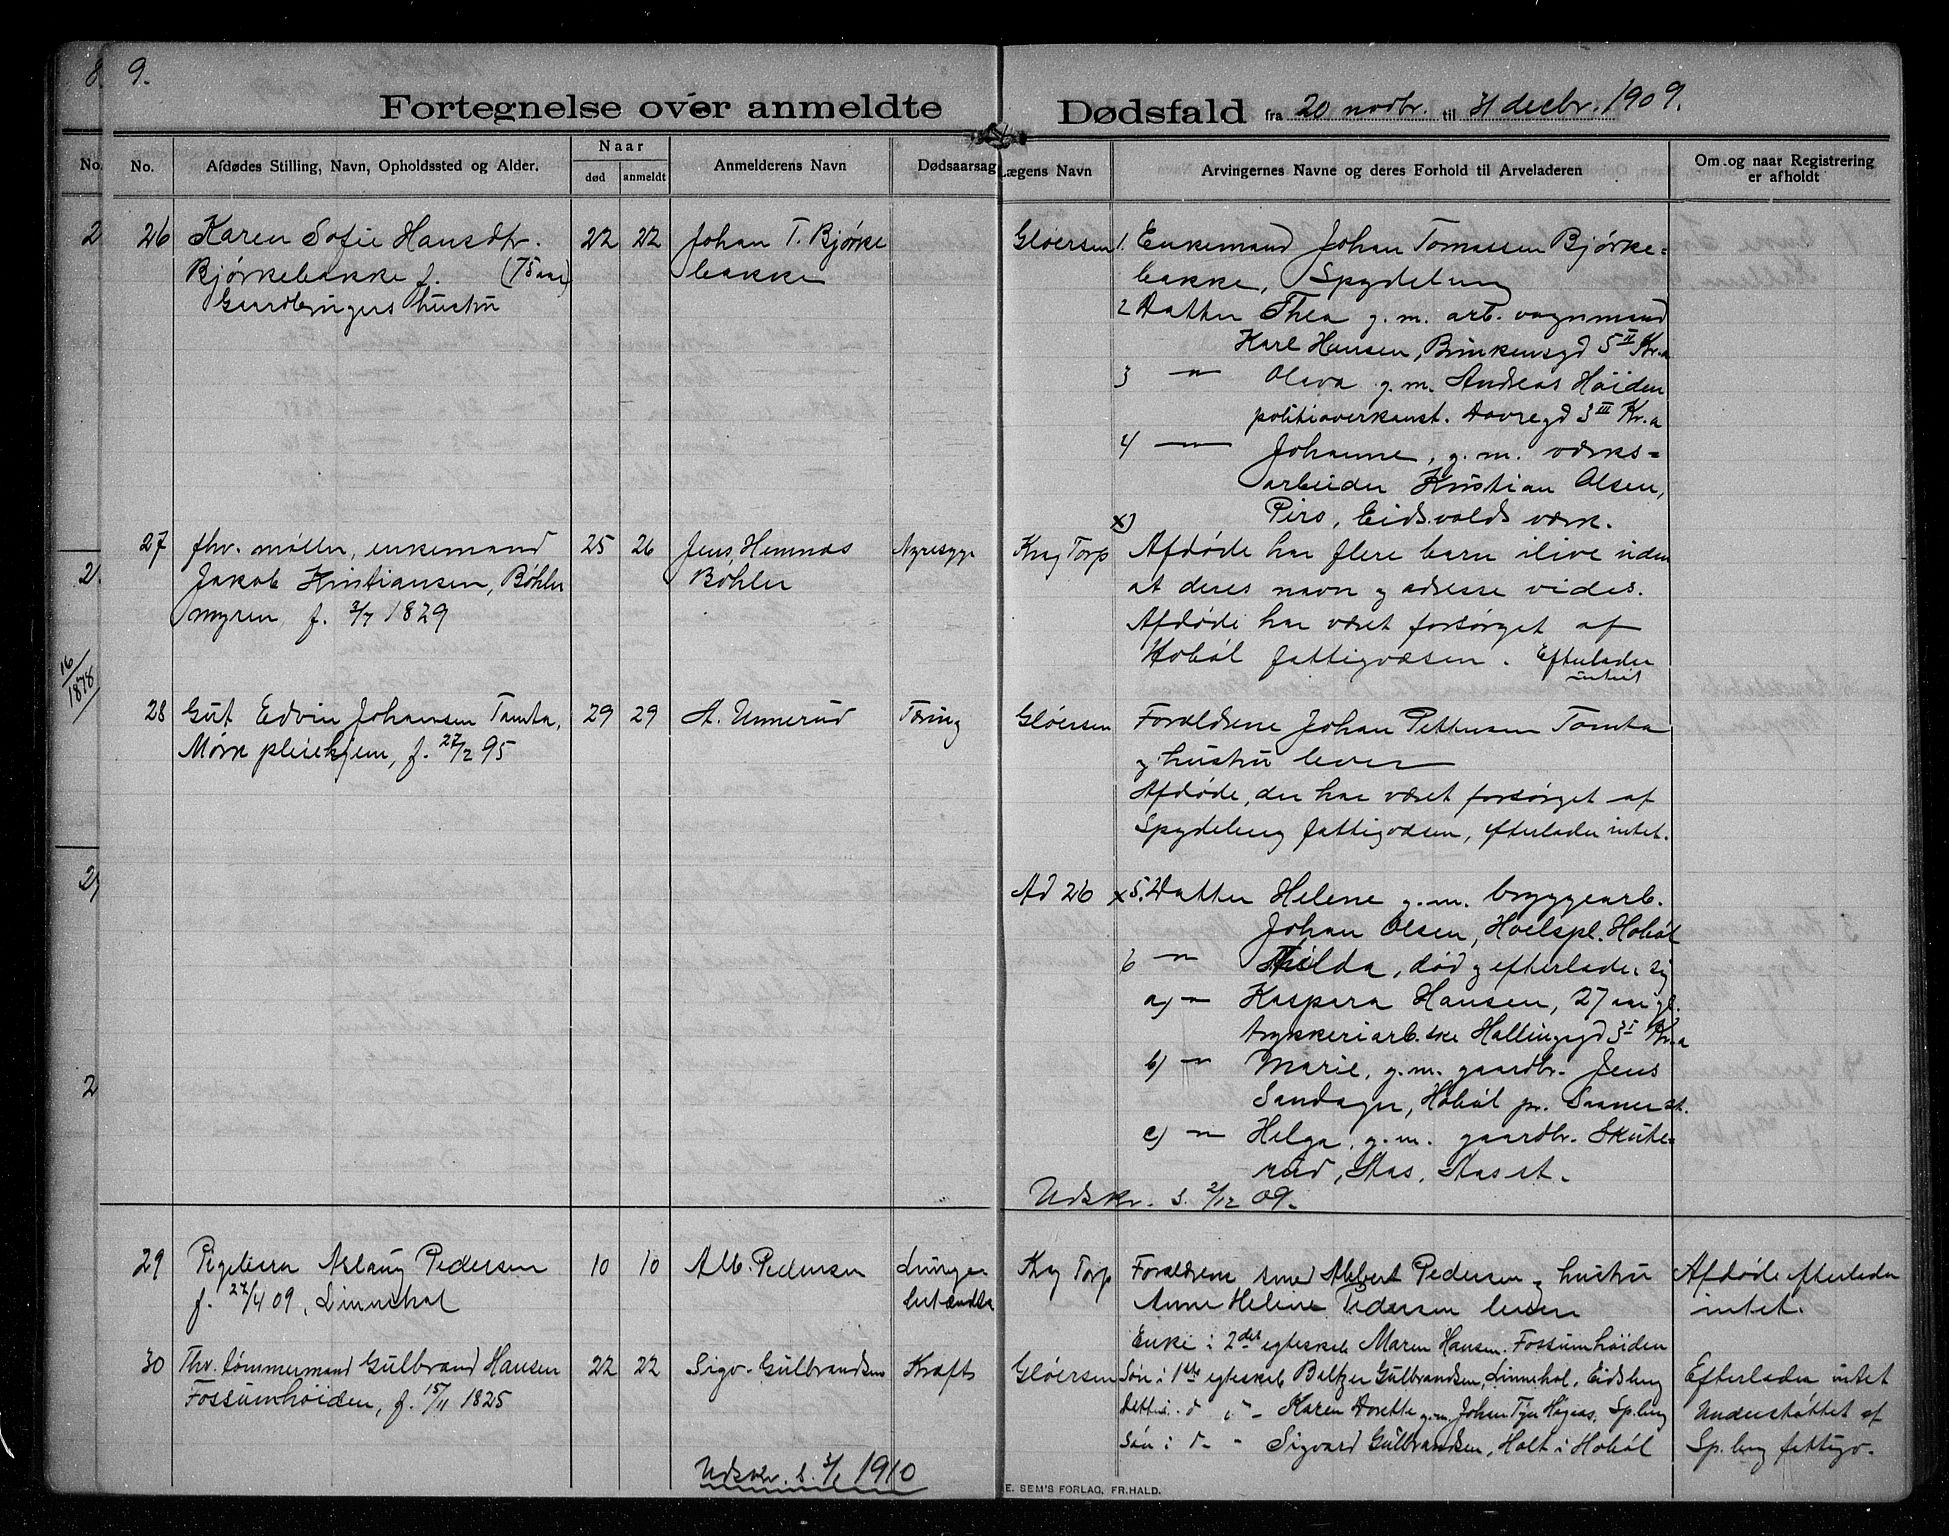 8. 9.
Fortegnelse over anmeldte Dødsfald fra 20 novbr. til 31 decbr. 1909.
No. No. Afdødes Stilling, Navn, Opholdssted og Alder. Naar død anmeldt Anmelderens Navn Dødsaarsag Lægens Navn Arvingernes Navne og deres Forhold til Arveladeren Om og naar Registrering er afholdt
26 Karen Sofie Hansdtr. 22 22 Johan T. Bjørke Gløersen 1. Enkemand Johan Tomassen Bjørke=
Bjørkebakke f. (75 aar) bakke bakke, Spydeberg
Gaardbrugers hustru 2 Datter Thea g. m. arb. vognmand
Karl Hansen, Brinkensgd 5 II Kr.a
3 " Olava g. m. Andreas Höiden
politioverkonst. Dovregd 3 III Kr.a
4 — Johanne, g. m. værks=
arbeider Kristian Olsen,
Piro, Eidsvolds værk.
x)
27 fhv. møller, enkemand 25 26 Jens Hemnæs Nyresyge Krag Torp Afdøde har flere barn ilive uden
Jakob Kristiansen, Bøhler Bøhler at deres navn og adresse vides.
myren f. 3/7 1829 Afdøde har været forsørget af
Hobøl fattigvæsen. Efterlader
intet
16/1878
28 Gut Edvin Johansen Tomta, 29 29 A. Unnerud Tæring Gløersen Forældrene Johan Pettersen Tomta
Mørk pleiehjem, f. 27/2 95 og hustru lever
Afdøde, der har været forsørget af
Spydeberg fattigvæsen, efterlader intet.
Ad 26 x 5. Datter Helene g. m. bryggearb.
Johan Olsen, Hoelspl. Hobøl
6 " Tilda, død og efterlader sig
a) " Kaspara Hansen, 27 aar gl.
trykkeriarb.ske Hallingsgd 3 I Kr.a
b) " Marie, g. m. gaardbr. Jens
Sandager, Hobøl pr. Saaner st.
c) " Helga, g. m. gaardbr. Skute=
rud, Aas, Aas st.
Udskr. s. 2/12 09.
29 Pigebarn Aslaug Pedersen 10 10 Alb. Pedersen Lunge Krag Torp Forældrene smed Albert Pedersen og hustru Afdøde efterlader
f. 27/4 09, Linnehol betændelse Anne Helene Pedersen lever intet.
Enke i 2det egteskab Maren Hansen Fossumhöiden
30 Fhv. tømmermand Gulbrand Hansen 22 22 Sigv. Gulbrandsen Kræft Gløersen Søn i 1ste egteskab Baltzer Gulbrandsen, Linnehol, Eidsberg Efterlader intet
Fossumhöiden, f. 15/11 1825 Datter i do " Karen Dorette g.m. Johan Sp.berg Understøttet af
Søn i do " Sigvard Gulbrandsen, Holt i Hobøl Sp.berg fattigv.
Udskr. s. 3/1 1910
E. SEM'S FORLAG, FR.HALD.